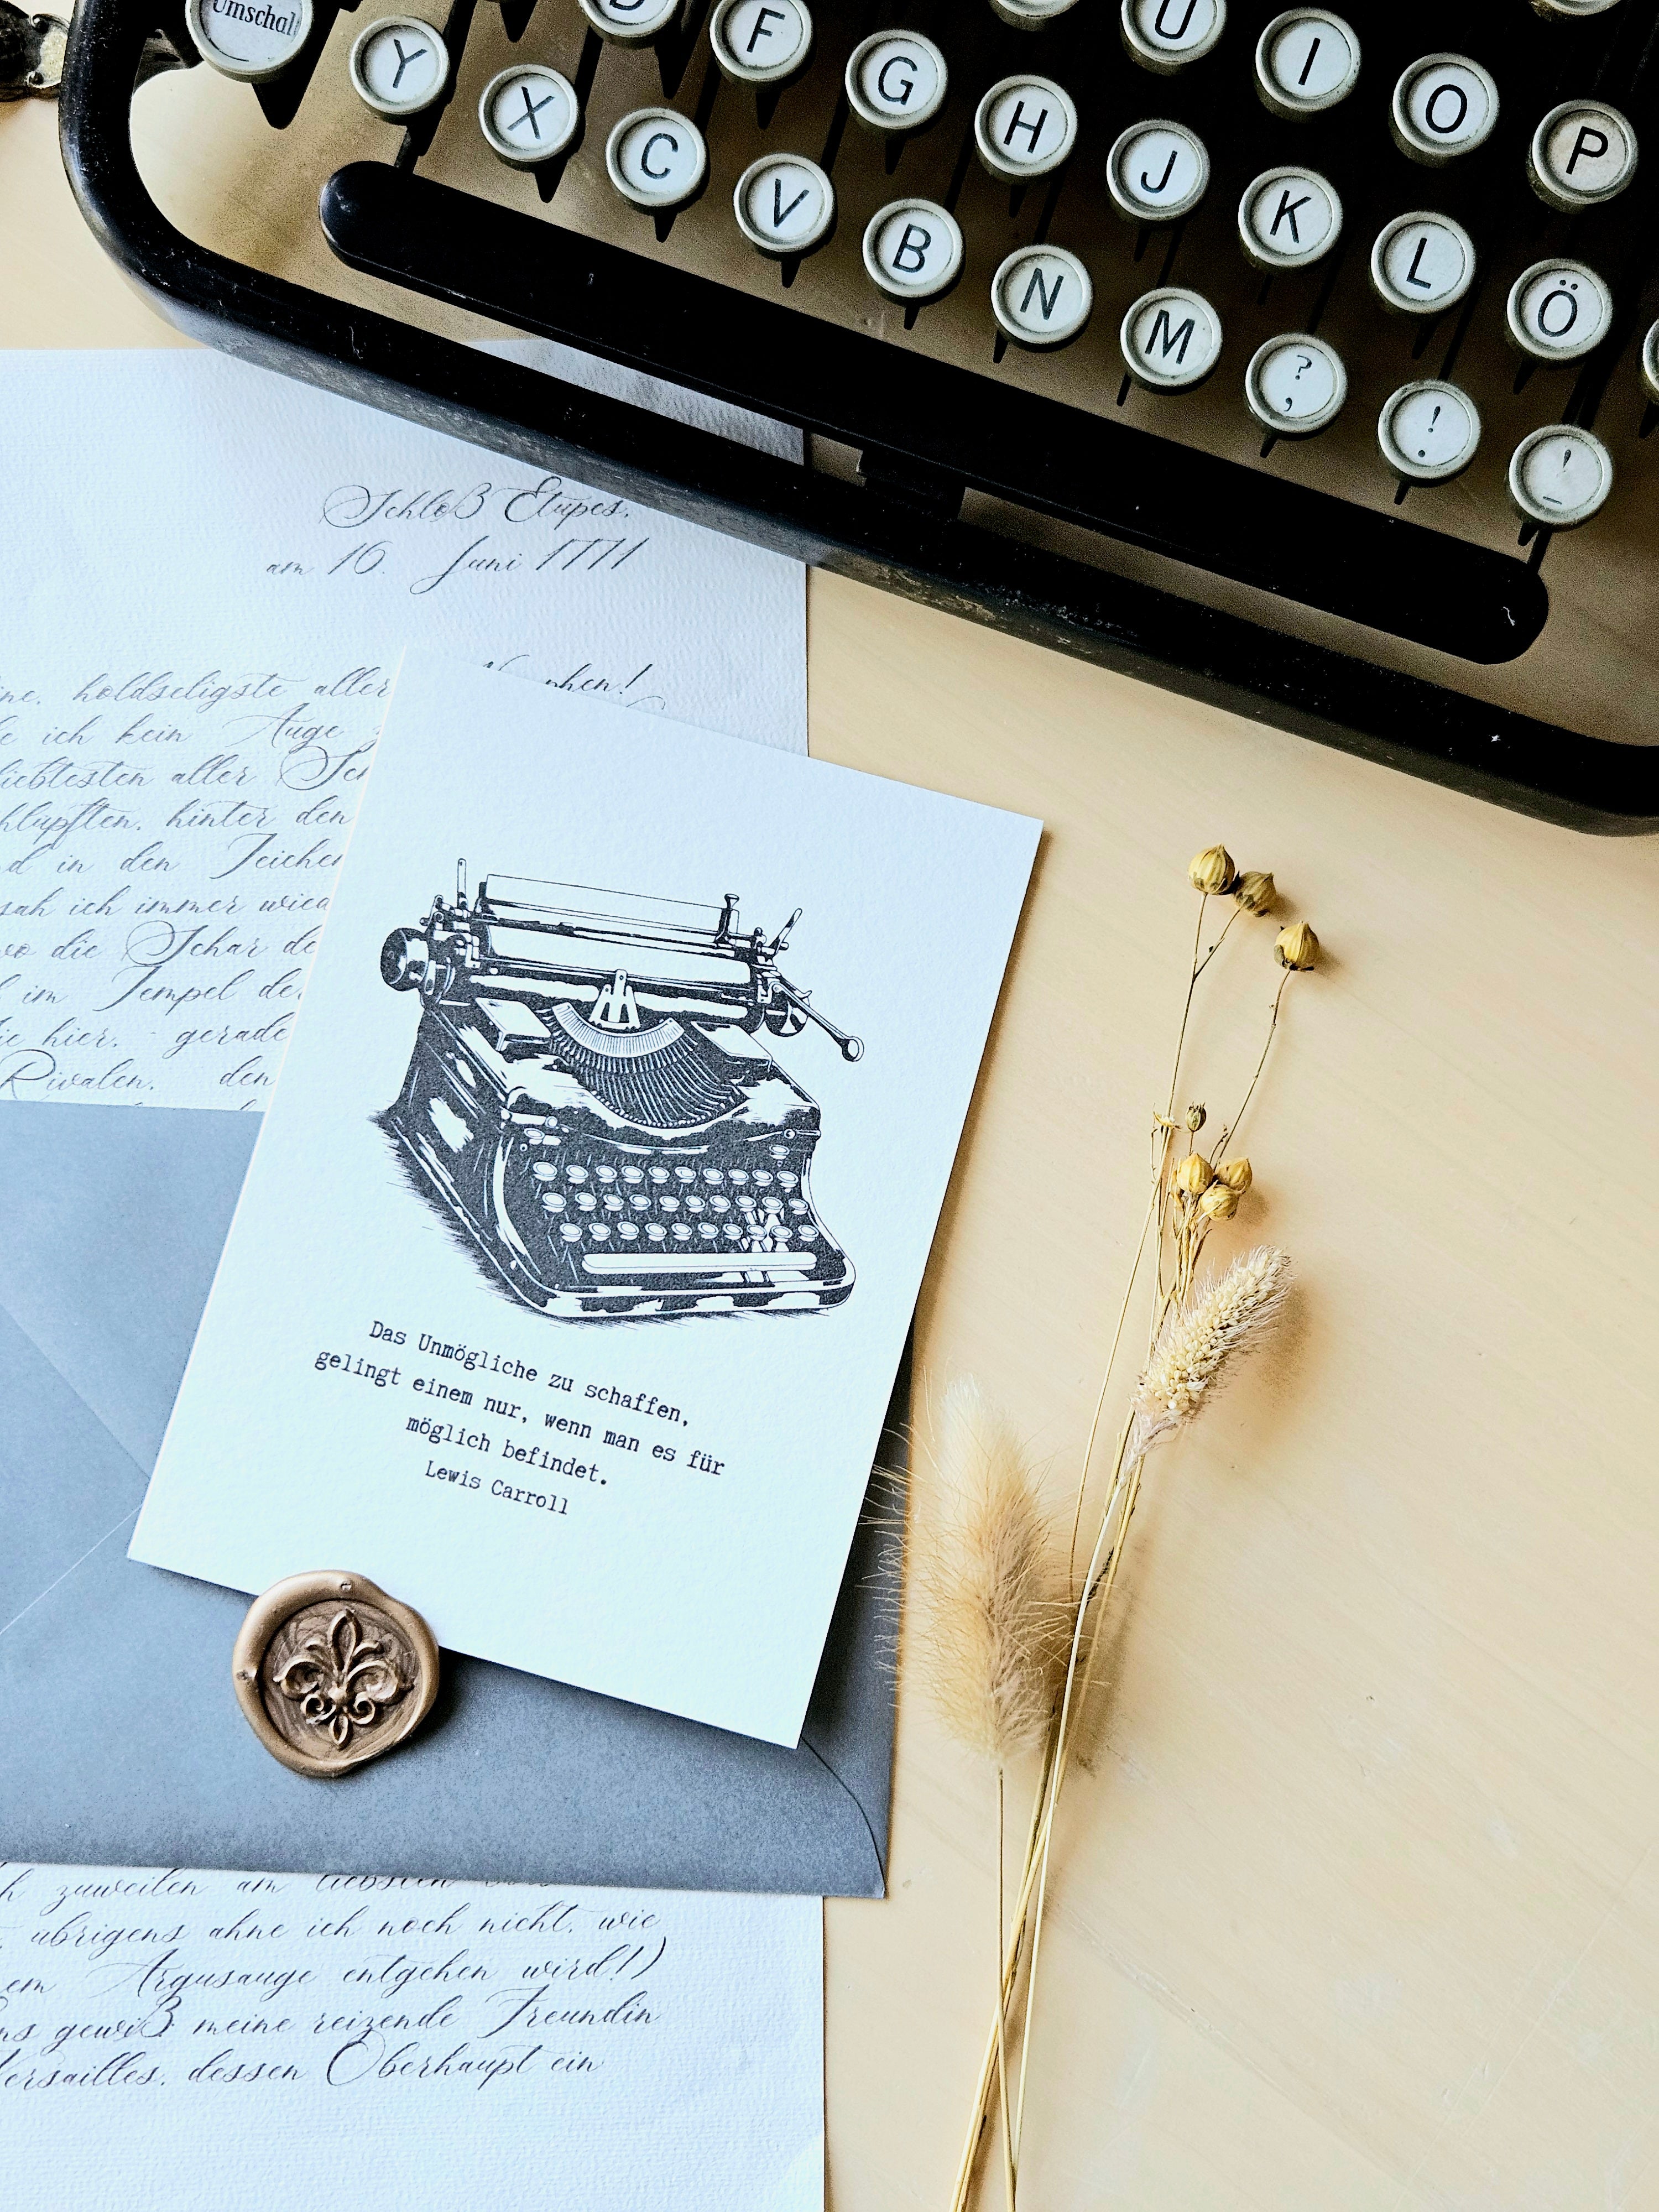 Umschal
D F G H J K L Ö
U I O P
Y X C V B N M ? , ! . ' _
Schloß Etupes,
am 10. Juni 1771
holdseligste aller
ich kein Auge
aller
hinter den
in den
sah ich immer
die Schar
im Tempel
hier, - gerade
Rivalen, den
Das Unmögliche zu schaffen,
gelingt einem nur, wenn man es für
möglich befindet.
Lewis Carroll
zuweilen am liebsten
übrigens ahne ich noch nicht, wie
Argusauge entgehen wird!)
gewiß meine reizende Freundin
Versailles, dessen Oberhaupt ein